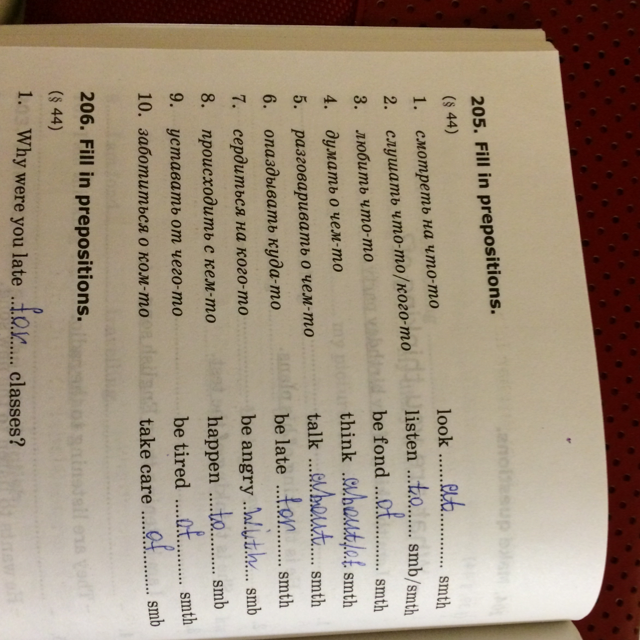 205. Fill in prepositions.
(§ 44)
1. смотреть на что-то look ......at......... smth
2. слушать что-то/кого-то listen ...to..... smb/smth
3. любить что-то be fond ...of....... smth
4. думать о чем-то think ..about/of. smth
5. разговаривать о чем-то talk ...about..... smth
6. опаздывать куда-то be late ....for..... smth
7. сердиться на кого-то be angry ..with.... smb
8. происходить с кем-то happen ...to....... smb
9. уставать от чего-то be tired ....of....... smth
10. заботиться о ком-то take care .....of......... smb
206. Fill in prepositions.
(§ 44)
1. Why were you late ...for...... classes?